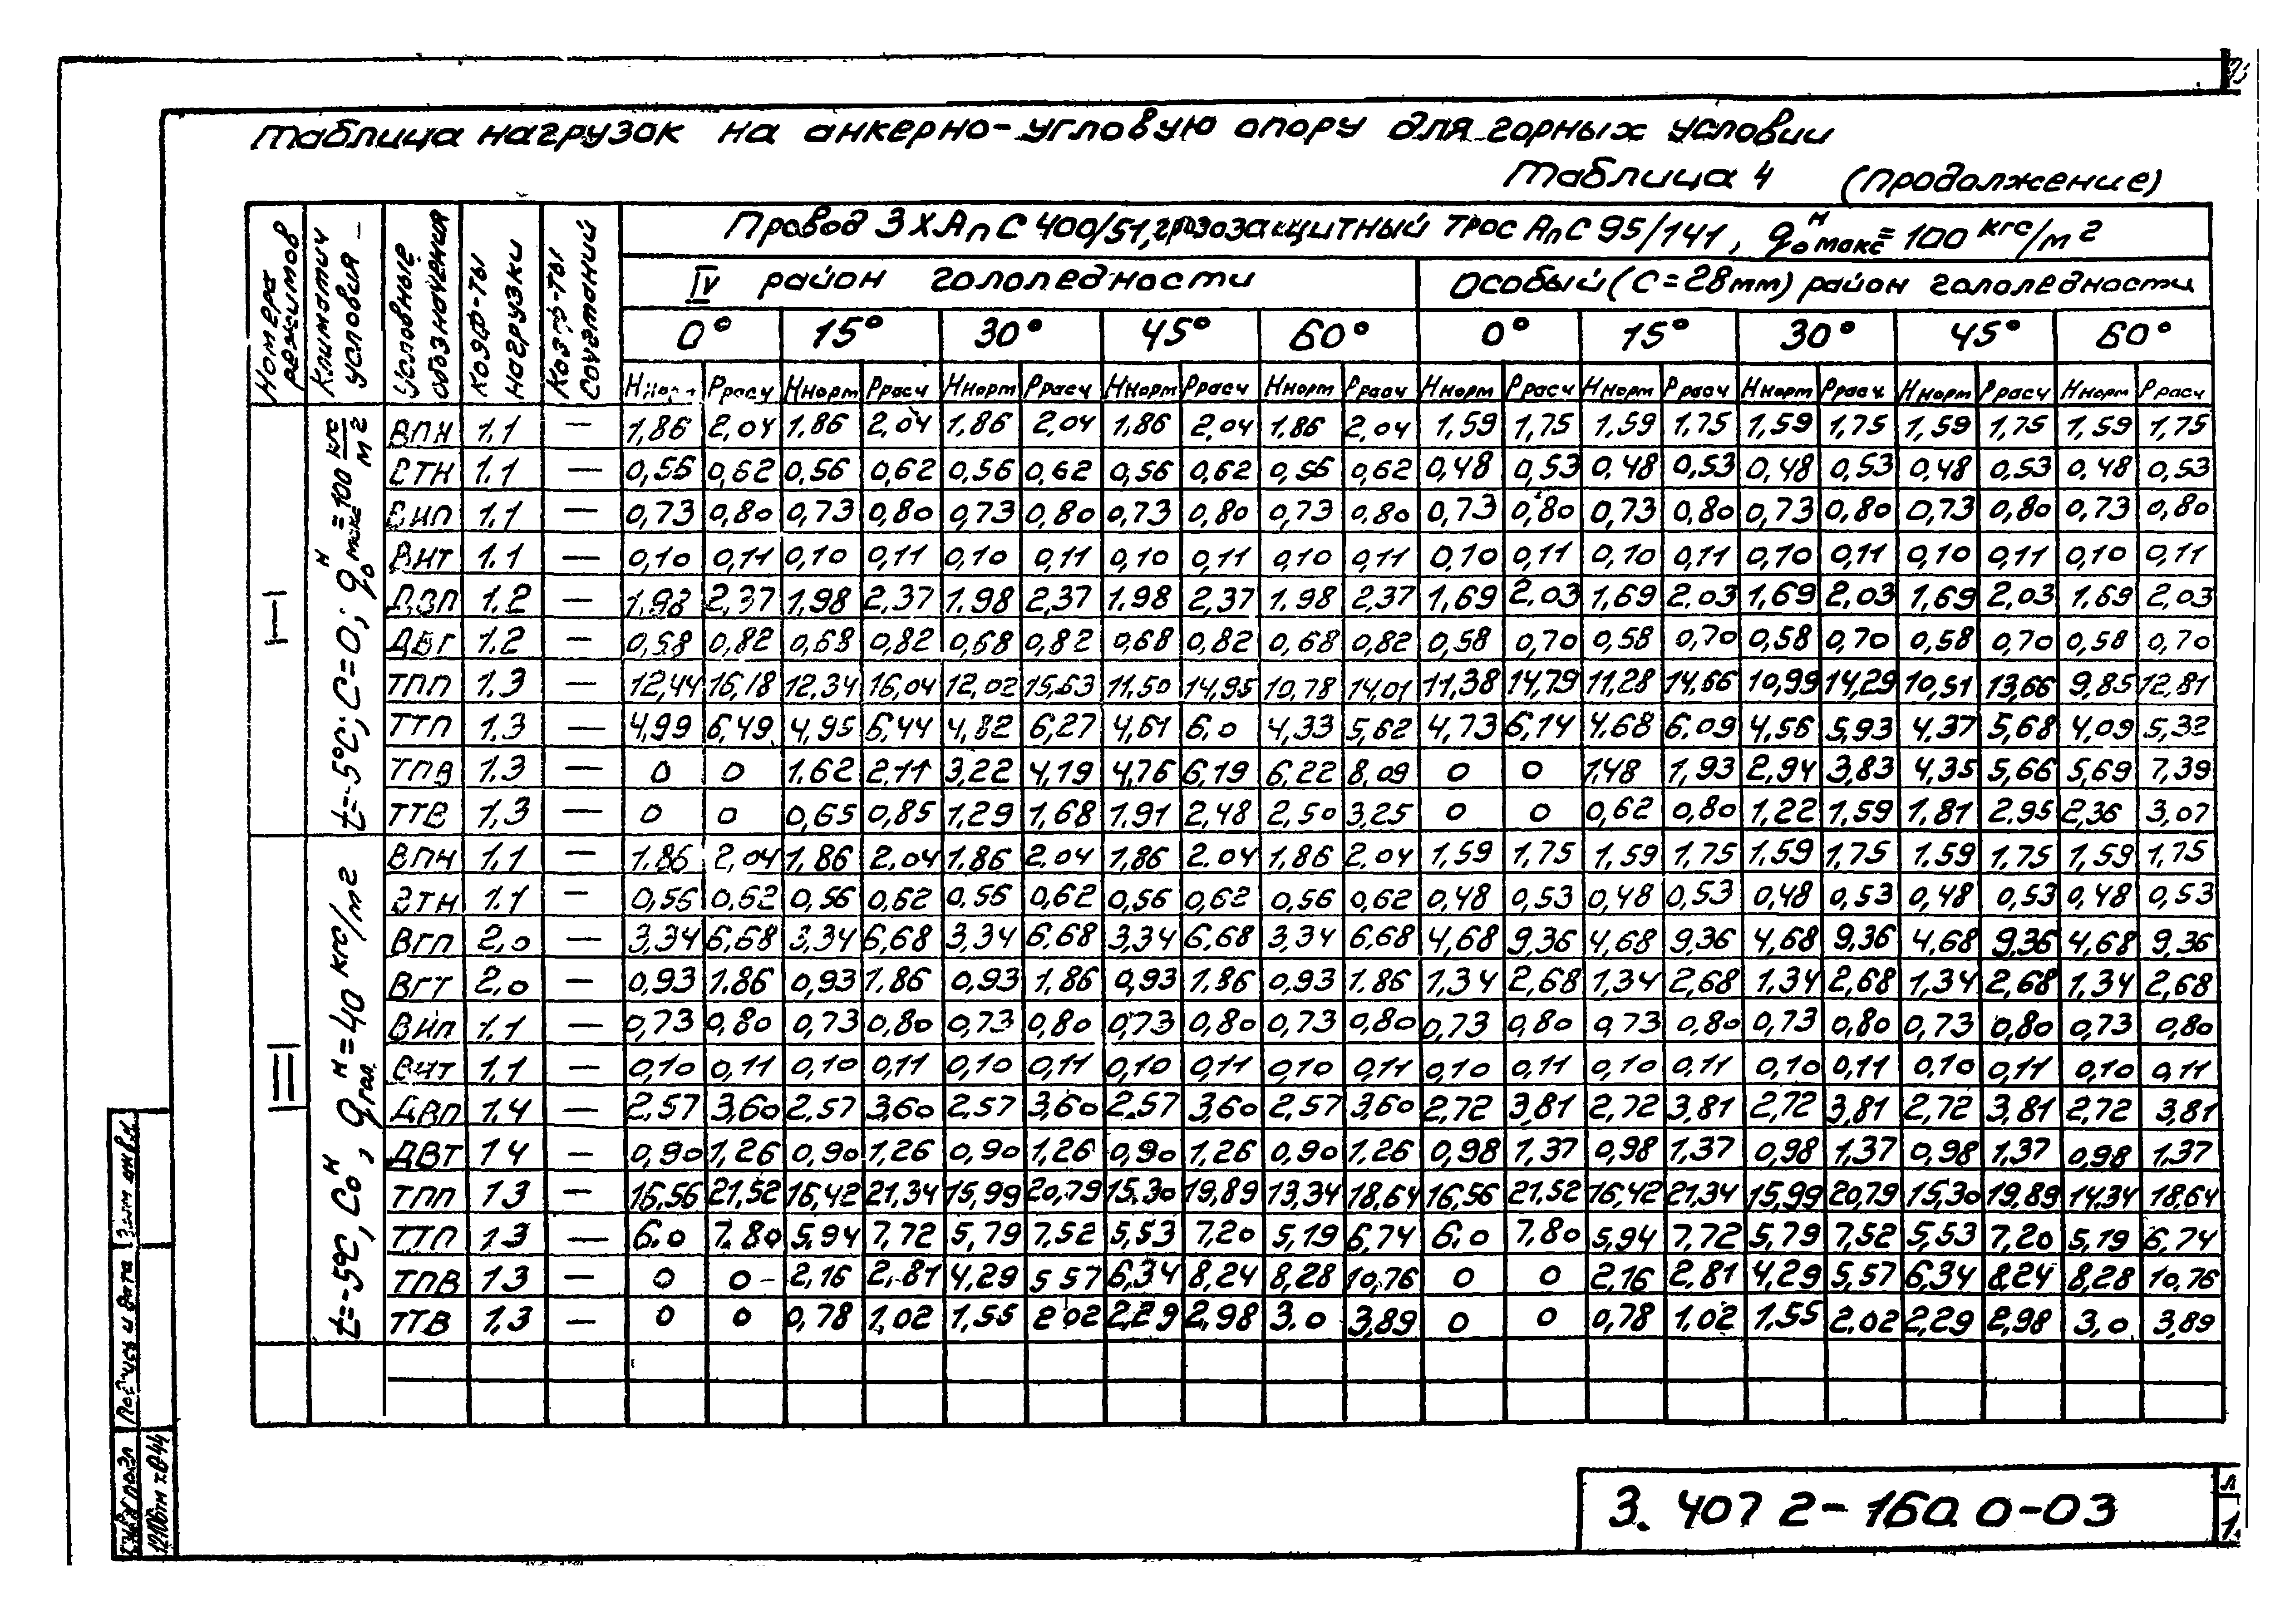 Таблица нагрузок на анкерно-угловую опору для горных условии
Таблица 4 (продолжение)
Номера режимов
Климатич условия
Условные обозначения
Коэф-ты нагрузки
Коэф-ты сочетаний
Провод 3ХАпС 400/51, грозозащитный трос АпС 95/141, qо макс н = 100 кгс/м2
IV район гололедности Особый (С=28мм) район гололедности
0° 15° 30° 45° 60° 0° 15° 30° 45° 60°
Ннорм Ррасч Ннорм Ррасч Ннорм Ррасч Ннорм Ррасч Ннорм Ррасч Ннорм Ррасч Ннорм Ррасч Ннорм Ррасч Ннорм Ррасч Ннорм Ррасч
I
t=-5°С; С=0; qо макс н = 100 кгс/м2
ВПН 1.1 — 1,86 2,04 1,86 2,04 1,86 2,04 1,86 2,04 1,86 2,04 1,59 1,75 1,59 1,75 1,59 1,75 1,59 1,75 1,59 1,75
ВТН 1.1 — 0,56 0,62 0,56 0,62 0,56 0,62 0,56 0,62 0,56 0,62 0,48 0,53 0,48 0,53 0,48 0,53 0,48 0,53 0,48 0,53
ВИП 1.1 — 0,73 0,80 0,73 0,80 0,73 0,80 0,73 0,80 0,73 0,80 0,73 0,80 0,73 0,80 0,73 0,80 0,73 0,80 0,73 0,80
ВИТ 1.1 — 0,10 0,11 0,10 0,11 0,10 0,11 0,10 0,11 0,10 0,11 0,10 0,11 0,10 0,11 0,10 0,11 0,10 0,11 0,10 0,11
ДВП 1.2 — 1,98 2,37 1,98 2,37 1,98 2,37 1,98 2,37 1,98 2,37 1,69 2,03 1,69 2,03 1,69 2,03 1,69 2,03 1,69 2,03
ДВТ 1.2 — 0,68 0,82 0,68 0,82 0,68 0,82 0,68 0,82 0,68 0,82 0,58 0,70 0,58 0,70 0,58 0,70 0,58 0,70 0,58 0,70
ТПП 1.3 — 12,44 16,18 12,34 16,04 12,02 15,63 11,50 14,95 10,78 14,01 11,38 14,79 11,28 14,66 10,99 14,29 10,51 13,66 9,85 12,81
ТТП 1.3 — 4,99 6,49 4,95 6,44 4,82 6,27 4,61 6,0 4,33 5,62 4,73 6,14 4,68 6,09 4,56 5,93 4,37 5,68 4,09 5,32
ТПВ 1.3 — 0 0 1,62 2,11 3,22 4,19 4,76 6,19 6,22 8,09 0 0 1,48 1,93 2,94 3,83 4,35 5,66 5,69 7,39
ТТВ 1.3 — 0 0 0,65 0,85 1,29 1,68 1,91 2,48 2,50 3,25 0 0 0,62 0,80 1,22 1,59 1,81 2,95 2,36 3,07
II
t=-5°С, Со н, qгол. н = 40 кгс/м2
ВПН 1.1 — 1,86 2,04 1,86 2,04 1,86 2,04 1,86 2,04 1,86 2,04 1,59 1,75 1,59 1,75 1,59 1,75 1,59 1,75 1,59 1,75
ВТН 1.1 — 0,56 0,62 0,56 0,62 0,56 0,62 0,56 0,62 0,56 0,62 0,48 0,53 0,48 0,53 0,48 0,53 0,48 0,53 0,48 0,53
ВГП 2,0 — 3,34 6,68 3,34 6,68 3,34 6,68 3,34 6,68 3,34 6,68 4,68 9,36 4,68 9,36 4,68 9,36 4,68 9,36 4,68 9,36
ВГТ 2,0 — 0,93 1,86 0,93 1,86 0,93 1,86 0,93 1,86 0,93 1,86 1,34 2,68 1,34 2,68 1,34 2,68 1,34 2,68 1,34 2,68
ВИП 1.1 — 0,73 0,80 0,73 0,80 0,73 0,80 0,73 0,80 0,73 0,80 0,73 0,80 0,73 0,80 0,73 0,80 0,73 0,80 0,73 0,80
ВИТ 1.1 — 0,10 0,11 0,10 0,11 0,10 0,11 0,10 0,11 0,10 0,11 0,10 0,11 0,10 0,11 0,10 0,11 0,10 0,11 0,10 0,11
ДВП 1,4 — 2,57 3,60 2,57 3,60 2,57 3,60 2,57 3,60 2,57 3,60 2,72 3,81 2,72 3,81 2,72 3,81 2,72 3,81 2,72 3,81
ДВТ 1 4 — 0,90 1,26 0,90 1,26 0,90 1,26 0,90 1,26 0,90 1,26 0,98 1,37 0,98 1,37 0,98 1,37 0,98 1,37 0,98 1,37
ТПП 1 3 — 16,56 21,52 16,42 21,34 15,99 20,79 15,30 19,89 13,34 18,64 16,56 21,52 16,42 21,34 15,99 20,79 15,30 19,89 14,34 18,64
ТТП 1 3 — 6,0 7,80 5,94 7,72 5,79 7,52 5,53 7,20 5,19 6,74 6,0 7,80 5,94 7,72 5,79 7,52 5,53 7,20 5,19 6,74
ТПВ 1 3 — 0 0 2,16 2,81 4,29 5,57 6,34 8,24 8,28 10,76 0 0 2,16 2,81 4,29 5,57 6,34 8,24 8,28 10,76
ТТВ 1,3 — 0 0 0,78 1,02 1,55 2 02 2,29 2,98 3,0 3,89 0 0 0,78 1,02 1,55 2,02 2,29 2,98 3,0 3,89
Взам инв.№
Подпись и дата
Инв № подл
12106тм т.0-44
3. 407 2-160. 0-03